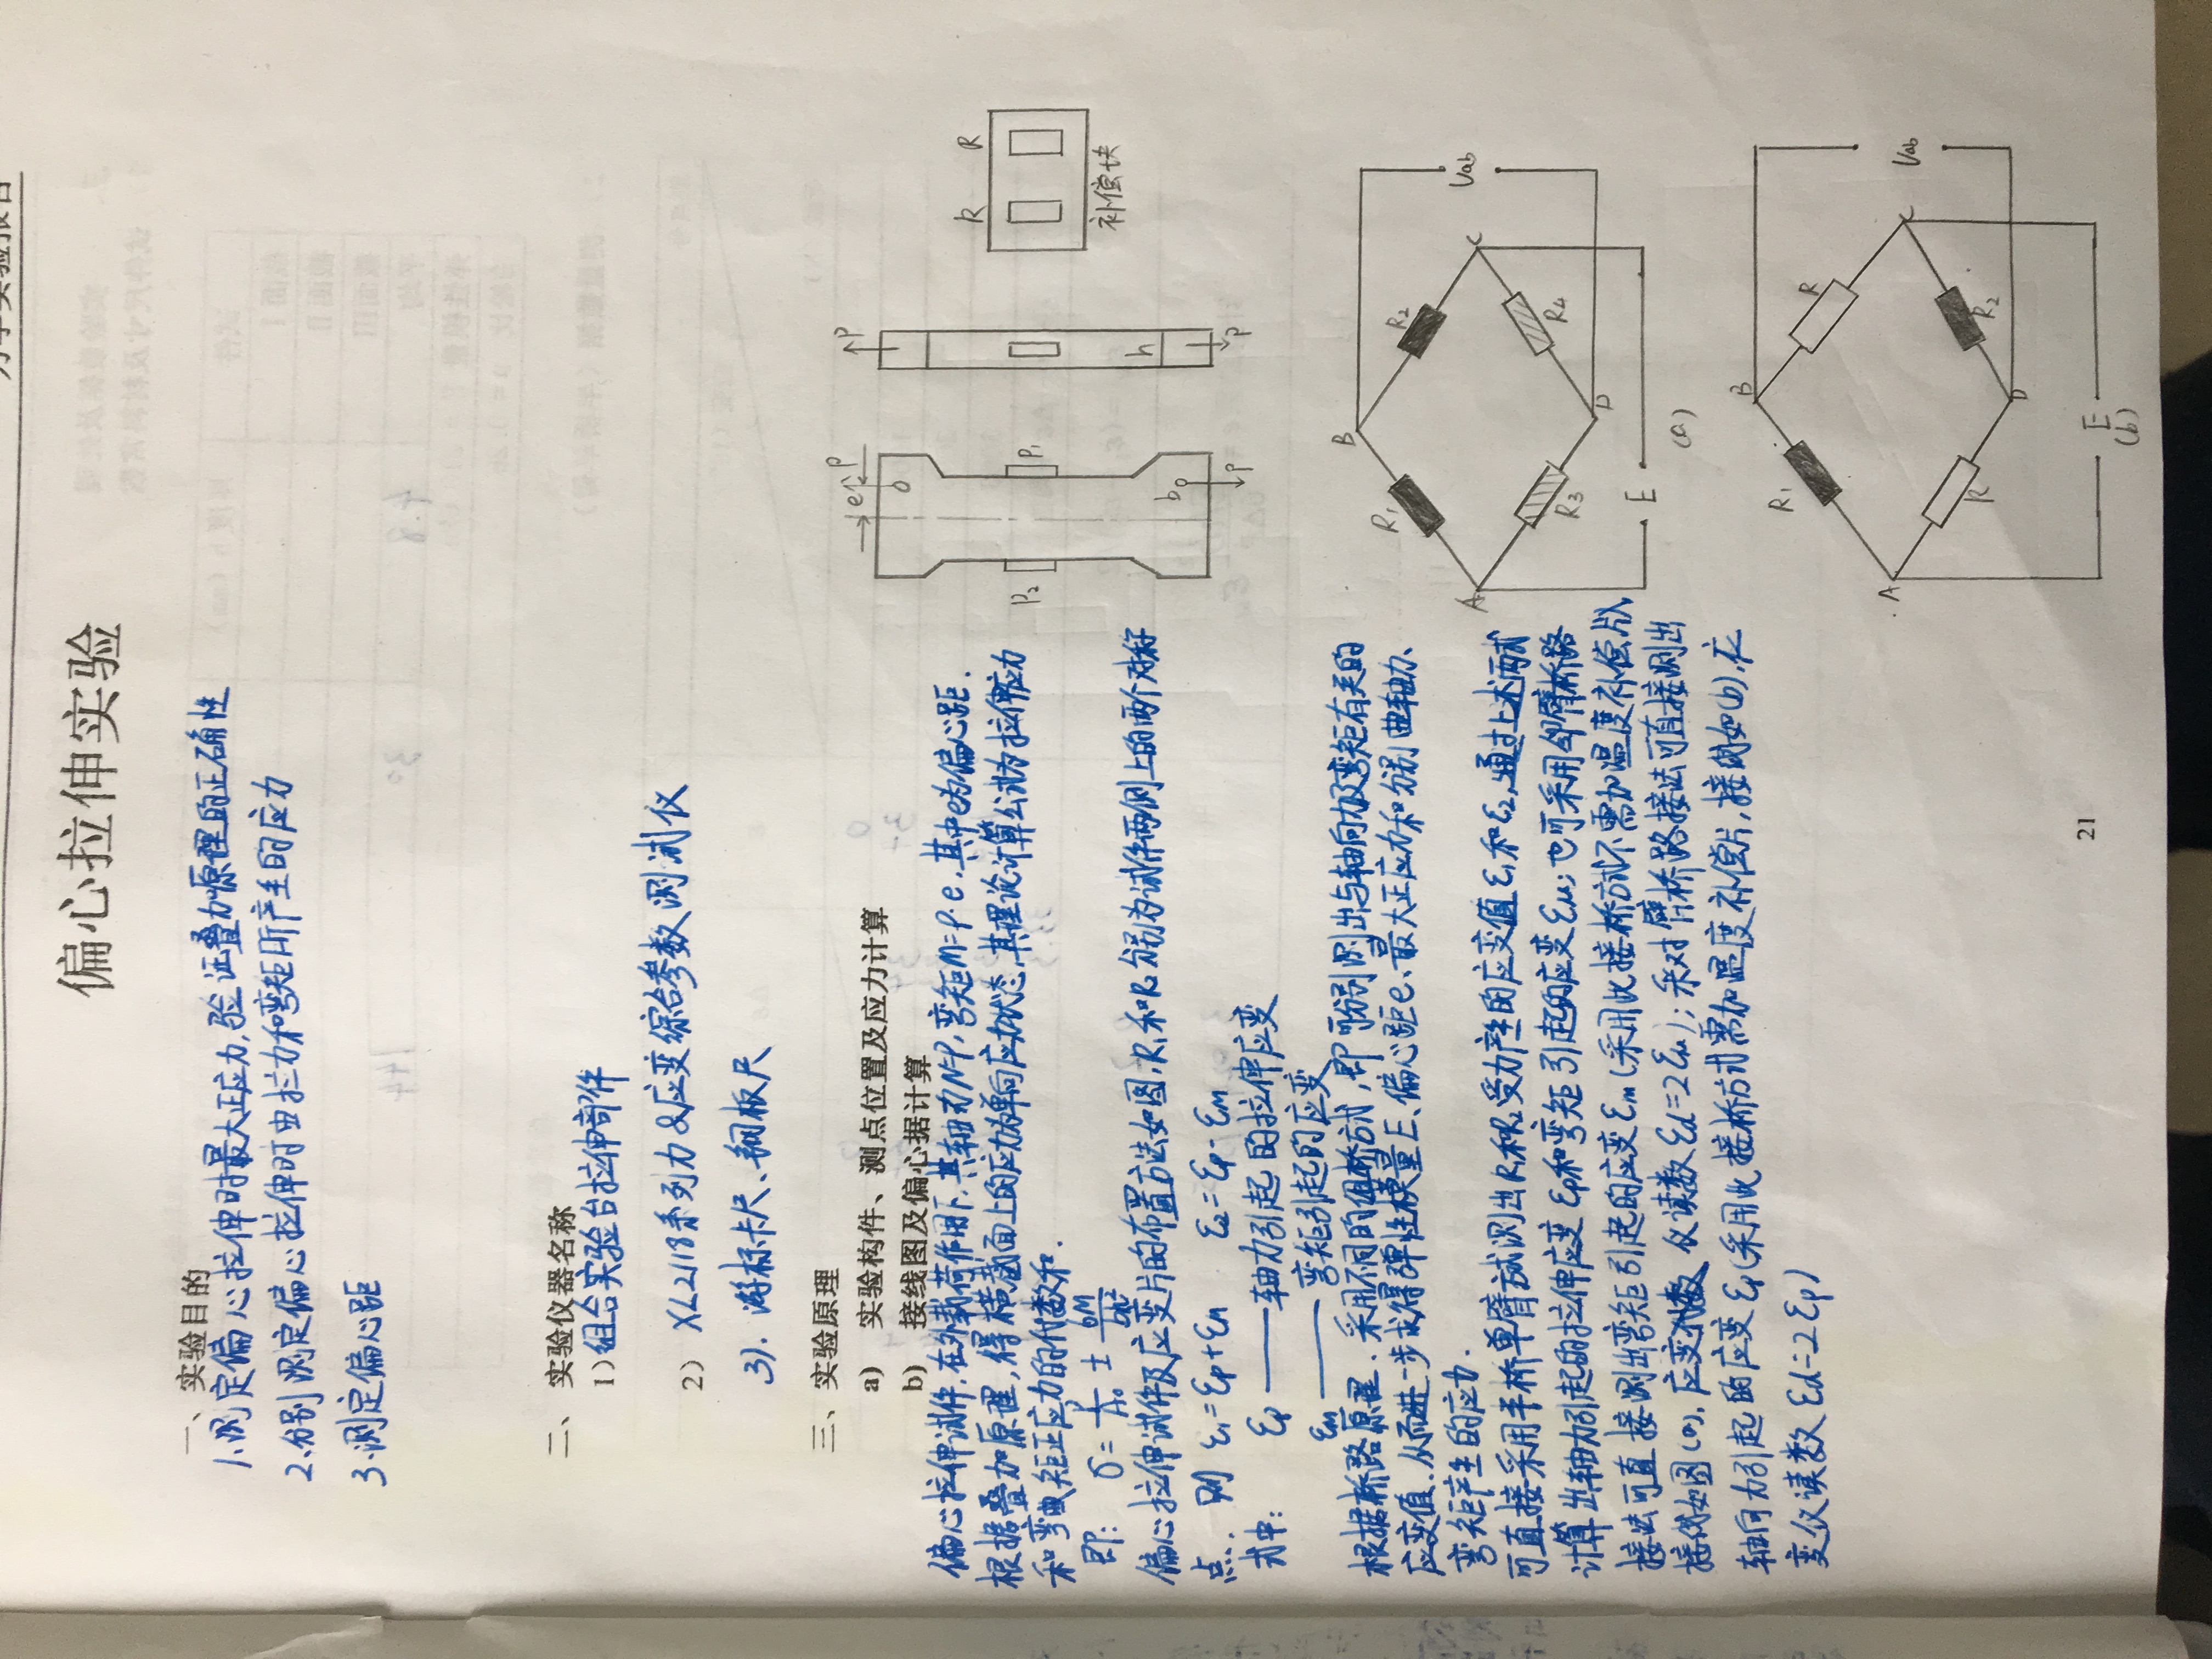 力学实验报告
偏心拉伸实验
一、实验目的
1.测定偏心拉伸时最大正应力,验证叠加原理的正确性
2.分别测定偏心拉伸时由拉力和弯矩所产生的应力
3.测定偏心距
二、实验仪器名称
1)组合实验台拉伸部件
2) XL2118系列力&应变综合参数测试仪
3).游标卡尺、钢板尺
三、实验原理
a) 实验构件、测点位置及应力计算
b) 接线图及偏心据计算
偏心拉伸试件,在外载荷作用下,其轴力N=P,弯矩M=P·e,其中e为偏心距.
根据叠加原理,得横截面上的应力为单向应力状态,其理论计算公式为拉伸应力
和弯曲矩正应力的代数和.
即: σ=P/A₀ ± 6M/bh²
偏心拉伸试件及应变片的布置方法如图,R₁和R₂分别为试件两侧上的两个对称
点. 则 ε₁=εp+εM ε₂=εp-εM
式中: εp —— 轴力引起的拉伸应变
εM —— 弯矩引起的应变
根据桥路原理.采用不同的组桥方式,即可分别测出与轴向力及弯矩有关的
应变值.从而进一步求得弹性模量E、偏心距e、最大正应力和分别由轴力、
弯矩产生的应力.
可直接采用半桥单臂方式测出R₁和R₂受力产生的应变值ε₁和ε₂,通过上述两式
计算出轴力引起的拉伸应变εp和弯矩引起的应变εM;也可采用邻臂桥路
接法可直接测出弯矩引起的应变εm(采用此接桥方式不需加温度补偿片,
接线如图(a),应变 仪读数εd=2εM);采对臂桥路接法可直接测出
轴向力引起的应变εp(采用此接桥方式需加温度补偿片,接线如(b),应
变仪读数εd=2εp)
e P
P
P₂ P₁
b h
P P
R R
补偿块
B
R₁ R₂
A C Uab
R₃ R₄
D
E
(a)
B
R₁ R
A C Uab
R R₂
D
E
(b)
21